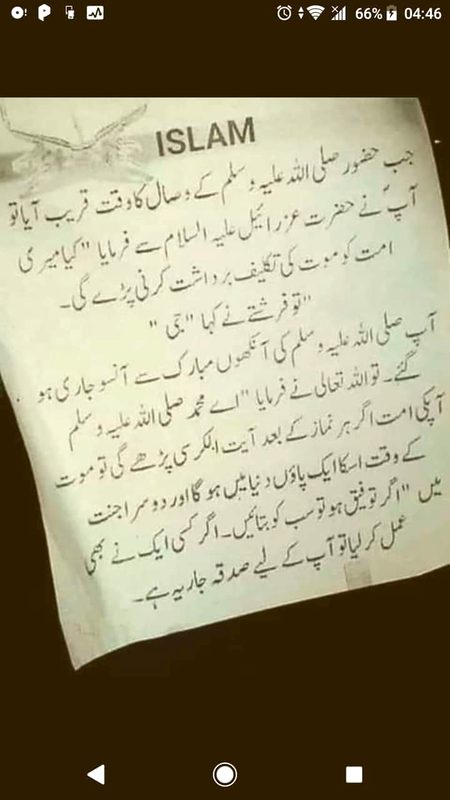 66% 04:46
ISLAM
جب حضور صلی اللہ علیہ و سلم کے وصال کا وقت قریب آیا تو
آپؐ نے حضرت عزرائیل علیہ السلام سے فرمایا "کیا میری
امت کو موت کی تکلیف برداشت کرنی پڑے گی۔
"تو فرشتے نے کہا "جی"
آپ صلی اللہ علیہ و سلم کی آنکھوں مبارک سے آنسو جاری ہو
گئے۔ تو اللہ تعالی نے فرمایا "اے محمد صلی اللہ علیہ و سلم
آپکی امت اگر ہر نماز کے بعد آیت الکرسی پڑھے گی تو موت
کے وقت اسکا ایک پاؤں دنیا میں ہو گا اور دوسرا جنت
میں "اگر توفیق ہو تو سب کو بتائیں۔ اگر کسی ایک نے بھی
عمل کر لیا تو آپ کے لیے صدقہ جاریہ ہے۔